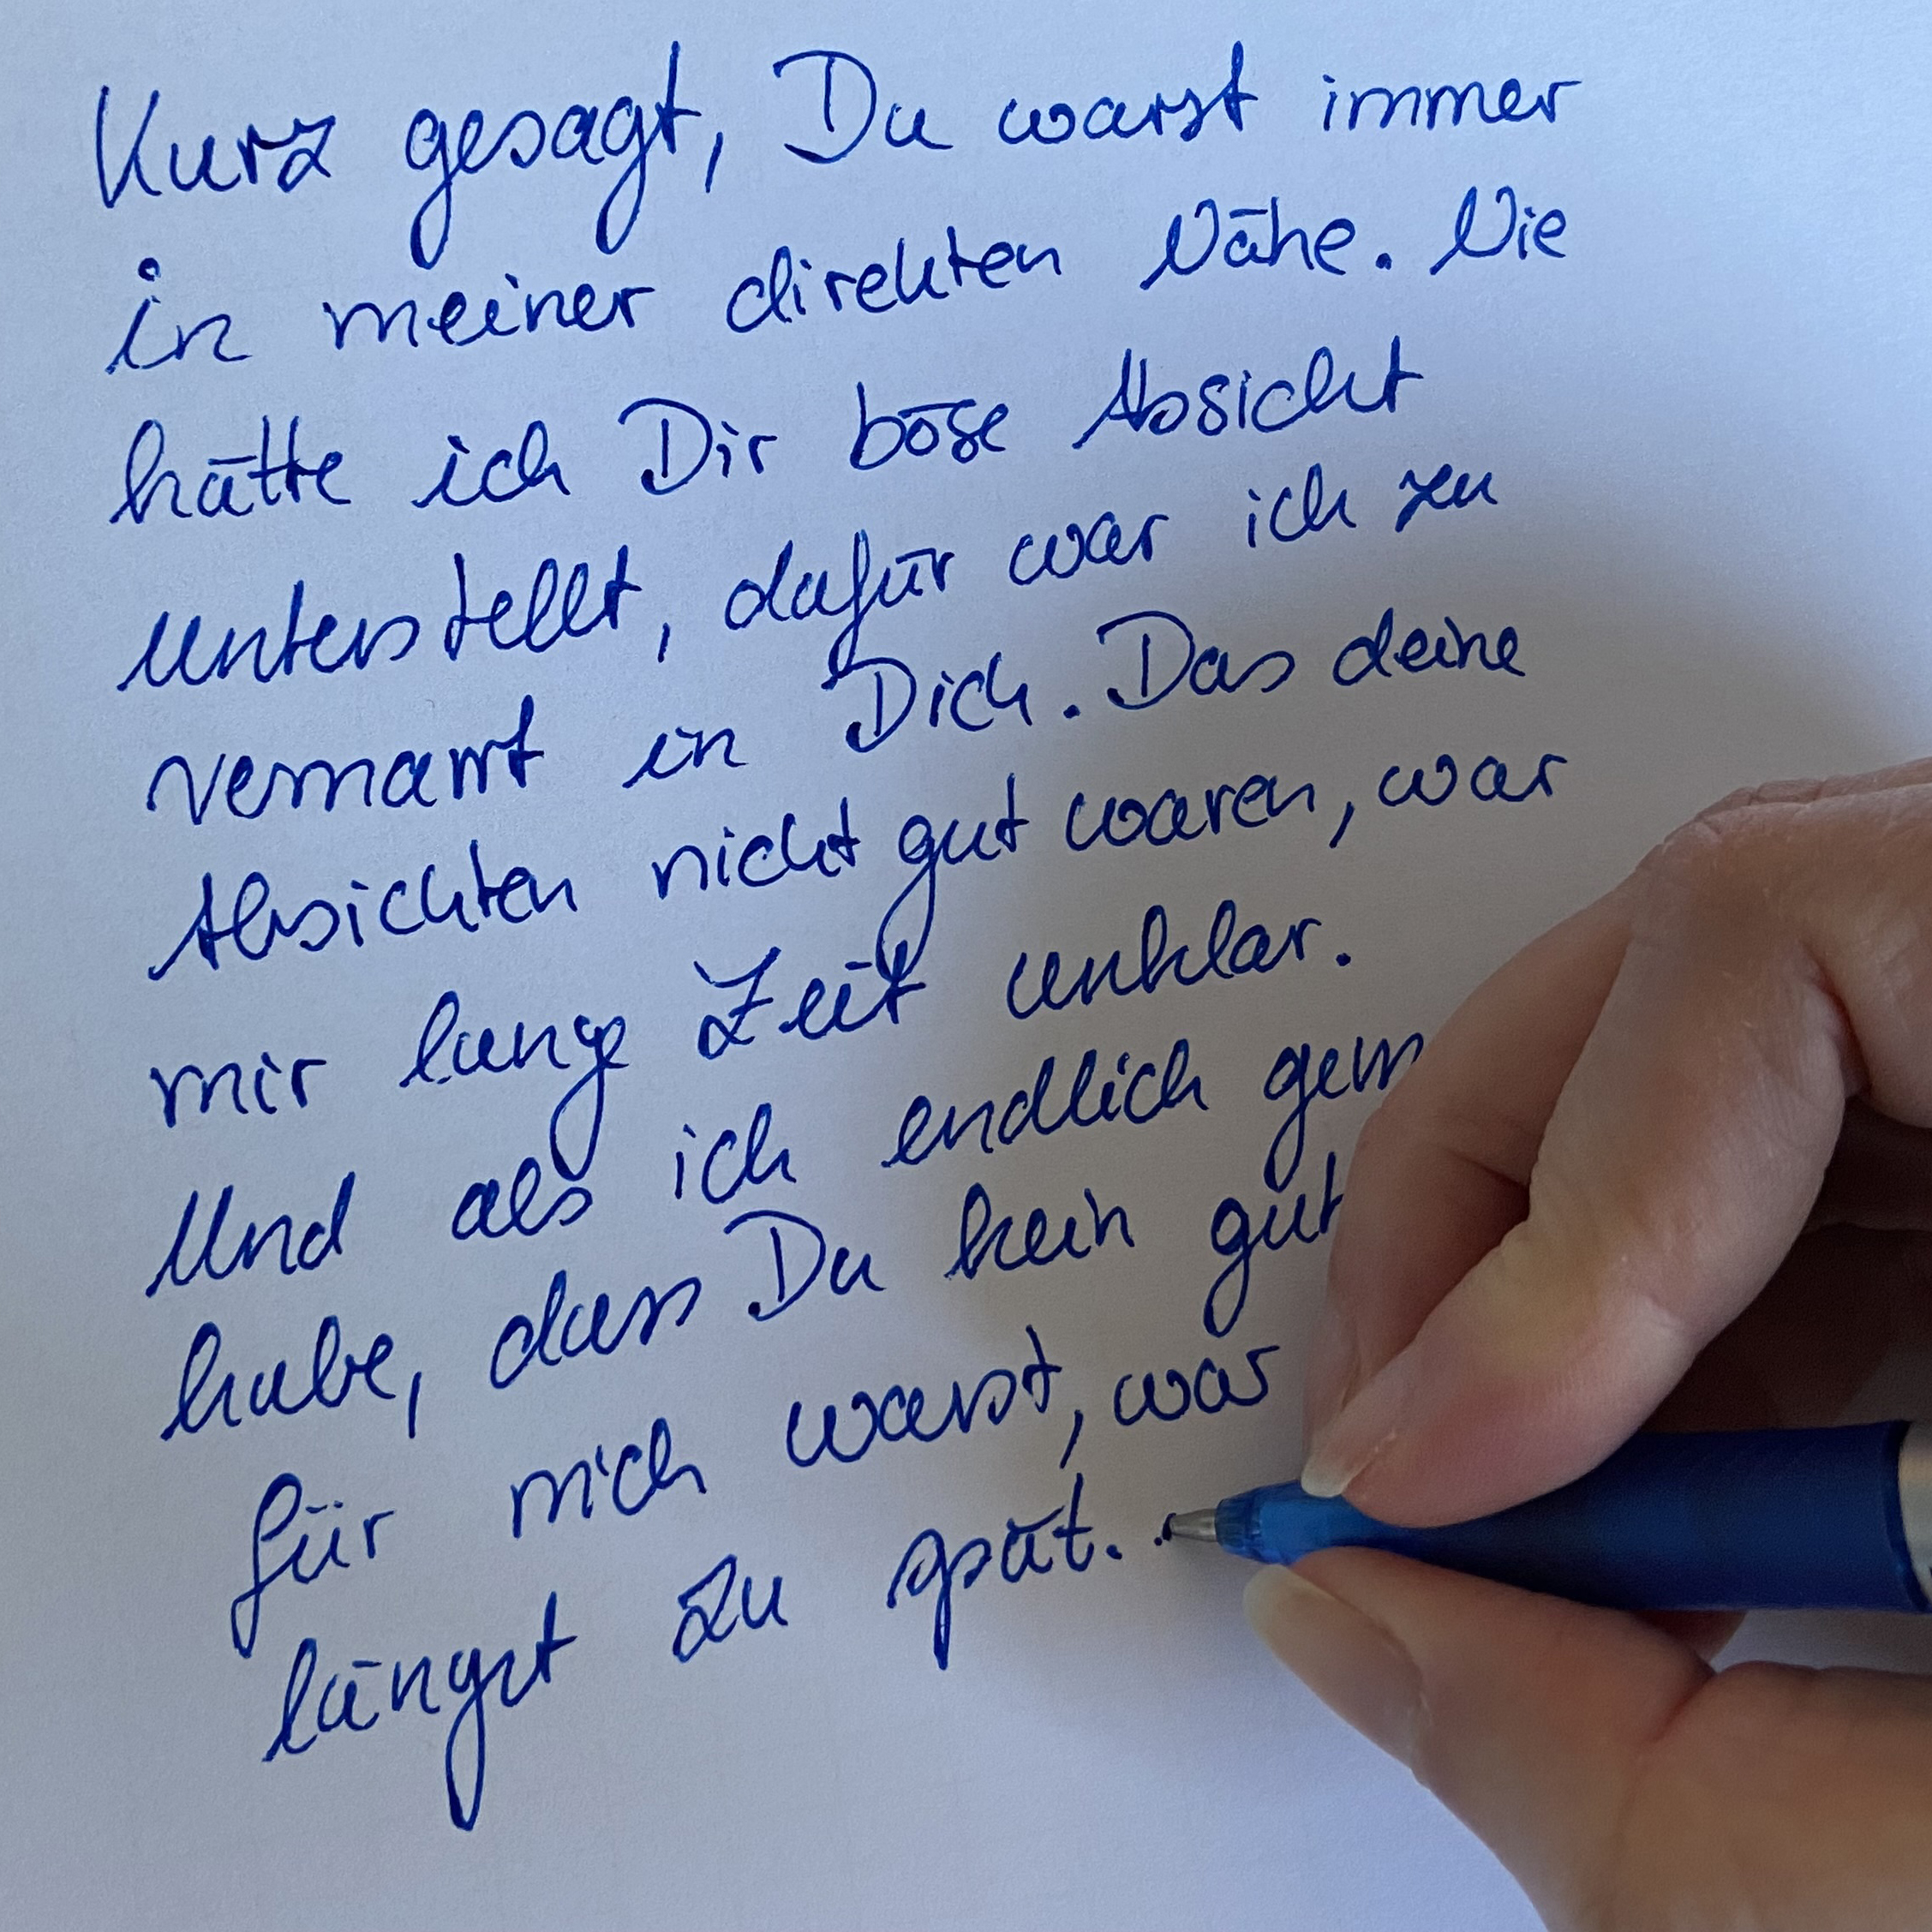 Kurz gesagt, Du warst immer
in meiner direkten Nähe. Nie
hätte ich Dir böse Absicht
unterstellt, dafür war ich zu
vernarrt in Dich. Das deine
Absichten nicht gut waren, war
mir lange Zeit unklar.
Und als ich endlich
habe, dass Du kein
für mich warst, war
längst zu spät..